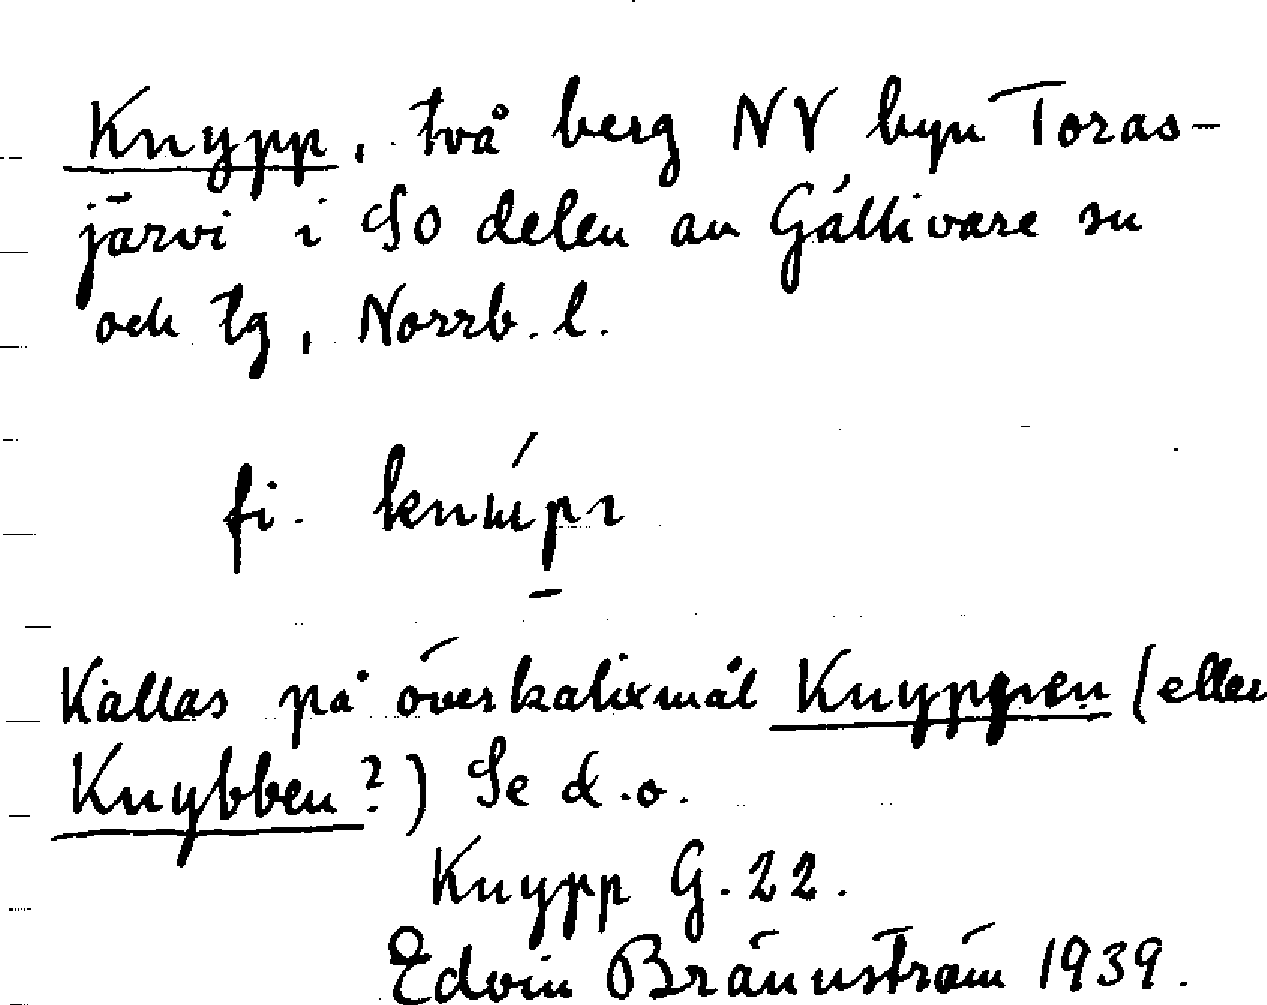 Knypp, två berg NV byn Toras-
järvi i SO delen av Gällivare sn
och tg, Norrb. l.
fi.
Kallas på överkalixmål Knyppen (eller
Knybben?) Se d.o.
Knypp G. 22.
Edvin Brännström 1939.